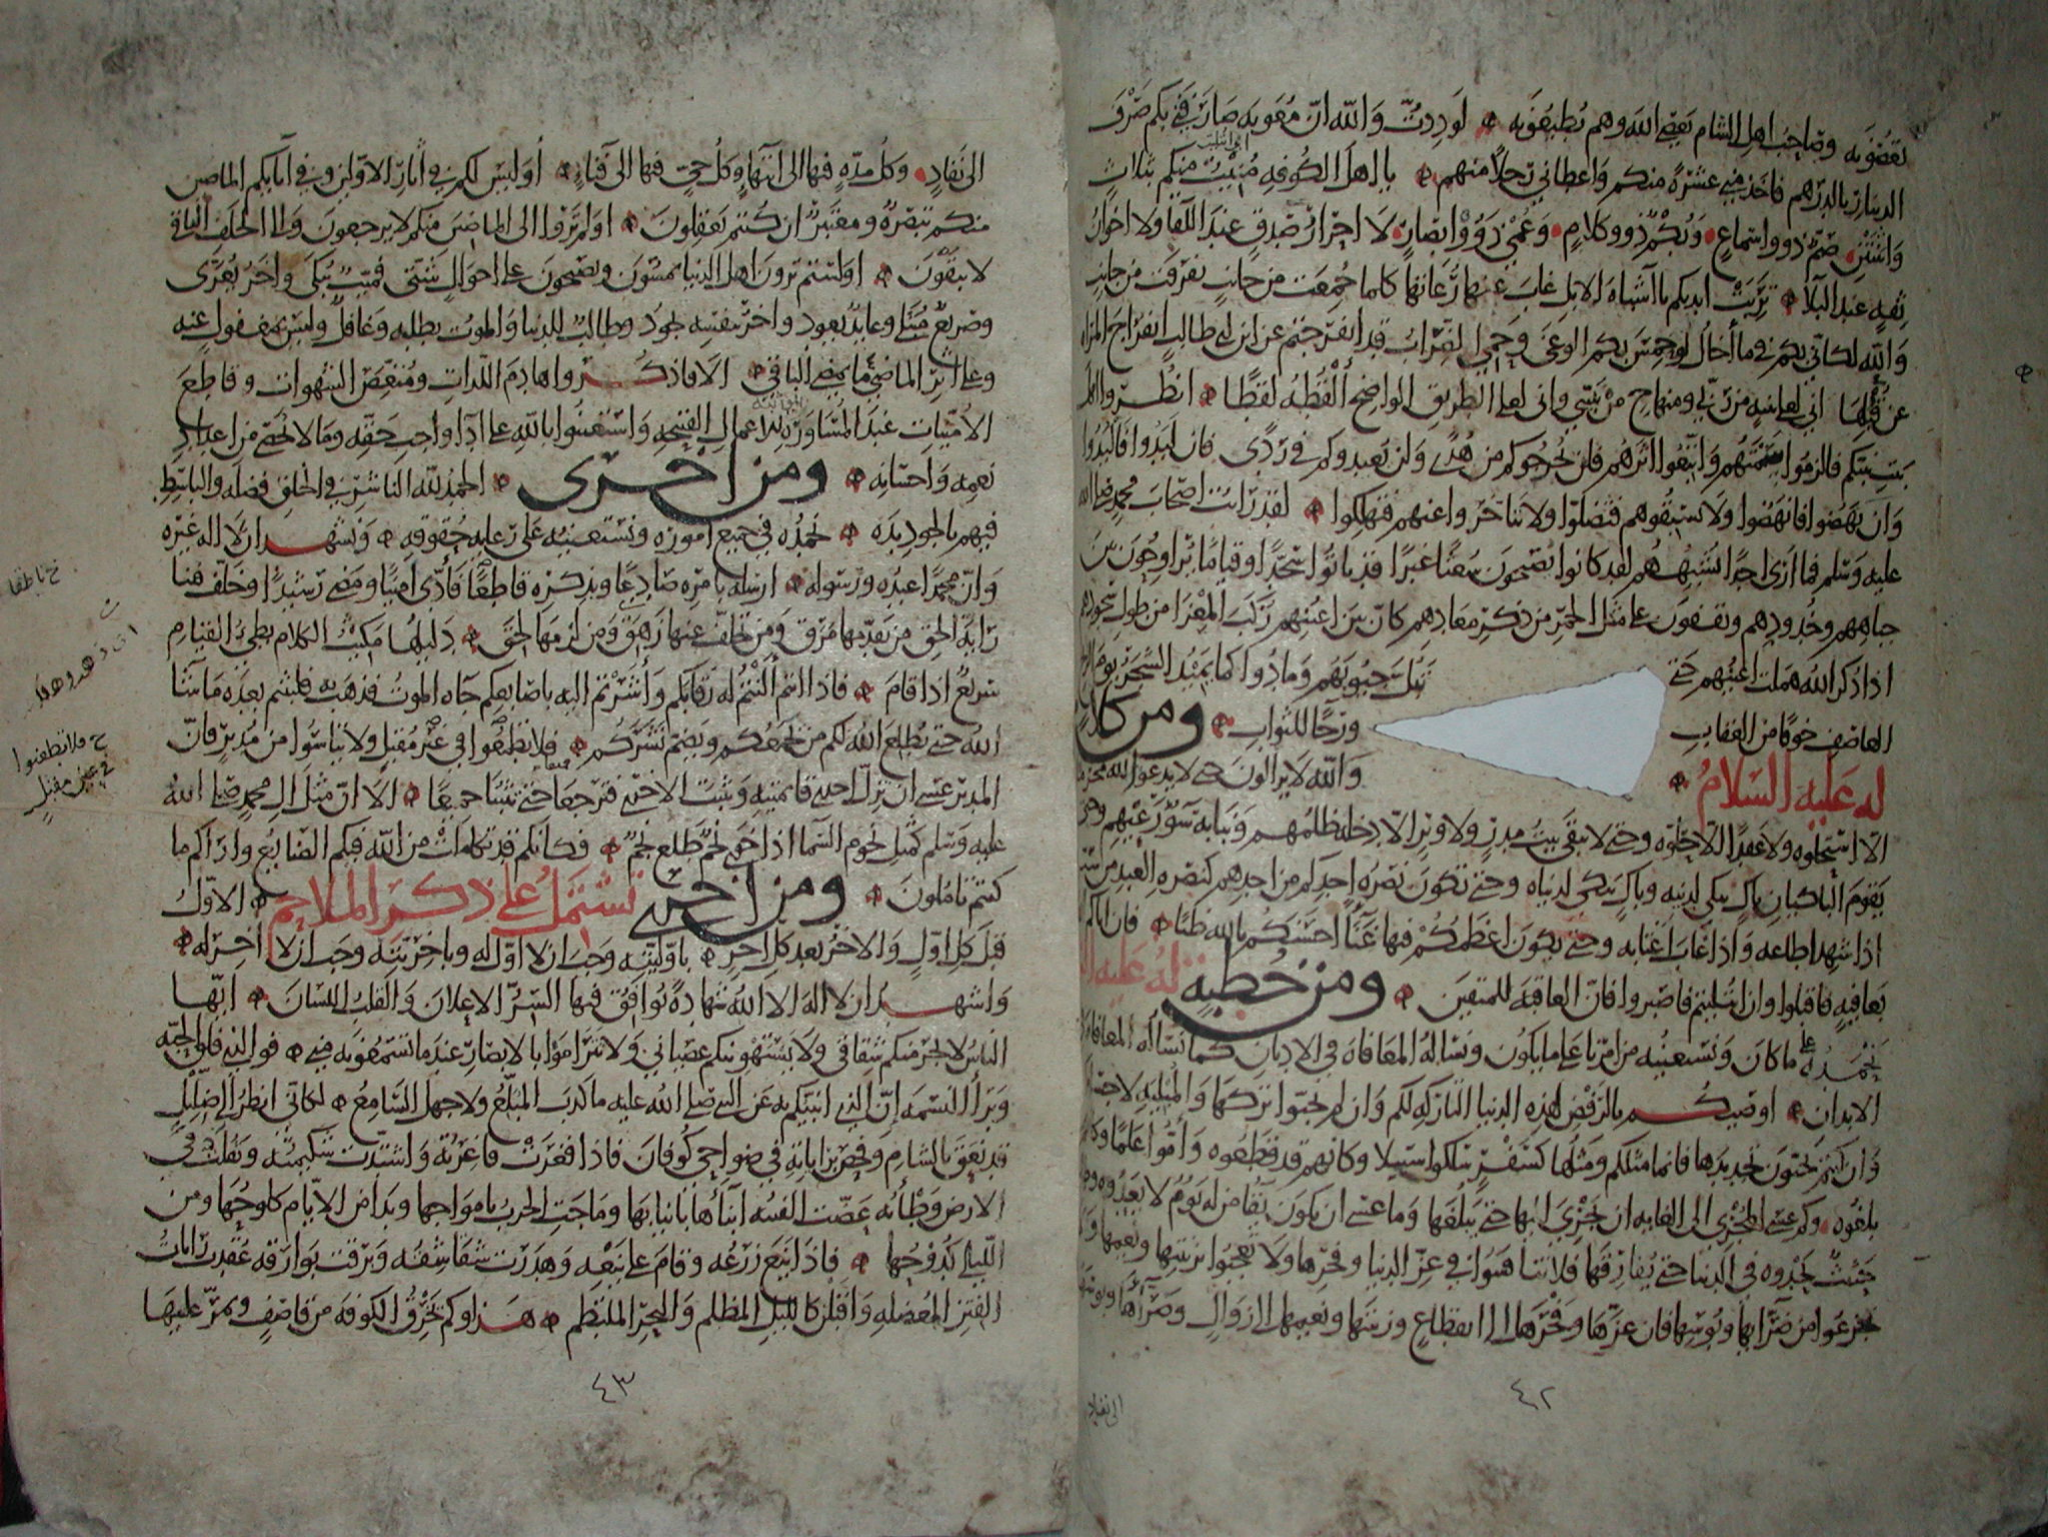 تعصونه وصاحب اهل الشام يعصي الله وهم يطيعونه لوددت والله ان معوية صارفني بكم صرف
الدينار بالدرهم فاخذ مني عشرة منكم واعطاني رجلا منهم يا اهل الكوفه منيت منكم بثلاث
واثنتين صم ذوو اسماع وبكم ذوو كلام وعمي ذوو ابصار لا احرار صدق عند اللقا ولا اخوان
ثقة عند البلا تربت ايديكم يا اشباه الابل غاب عنها رعاتها كلما جمعت من جانب تفرقت من جانب
والله لكاني بكم فيما اخال لو حمس الوغى وحمي الضراب قد انفرجتم عن ابن ابي طالب انفراج المراة
عن قبلها اني لعلى بينه من ربي ومنهاج من نبيي واني لعلى الطريق الواضح القطه لقطا انظروا اهل
بيت نبيكم فالزموا سمتهم واتبعوا اثرهم فلن يخرجوكم من هدى ولن يعيدوكم في ردى فان لبدوا فالبدوا
وان نهضوا فانهضوا ولا تسبقوهم فتضلوا ولا تتاخروا عنهم فتهلكوا لقد رايت اصحاب محمد صلى الله
عليه وسلم فما ارى احدا يشبههم لقد كانوا يصبحون شعثا غبرا قد باتوا سجدا وقياما يراوحون بين
جباههم وخدودهم ويقفون على مثل الجمر من ذكر معادهم كان بين اعينهم ركب المعزا من طول سجودهم
اذا ذكر الله هملت اعينهم حتى تبل جيوبهم ومادوا كما يميد الشجر يوم الريح
العاصف خوفا من العقاب ورجا للثواب ومن كلام
له عليه السلام والله لا يزالون حتى لا يدعوا لله محرما
الا استحلوه ولا عقدا الا حلوه وحتى لا يبقى بيت مدر ولا وبر الا دخله ظلمهم ونبا به سو رعيهم وحتى
يقوم الباكيان باك يبكي لدينه وباك يبكي لدنياه وحتى تكون نصرة احدكم من احدهم كنصرة العبد من سيده
اذا شهد اطاعه واذا غاب اغتابه وحتى يكون اعظمكم فيها عنا احسنكم بالله ظنا فان اتاكم
بعافية فاقبلوا وان ابتليتم فاصبروا فان العاقبة للمتقين ومن خطبة له عليه
نحمده على ما كان ونستعينه من امرنا على ما يكون ونساله المعافاة في الاديان كما نساله المعافاة في
الابدان اوصيكم بالرفض لهذه الدنيا التاركة لكم وان لم تحبوا تركها والمبلية لاجسامكم
وان كنتم تحبون تجديدها فانما مثلكم ومثلها كسفر سلكوا سبيلا وكانهم قد قطعوه واموا علما وكانهم
بلغوه وكم عسى المجري الى الغاية ان يجري اليها حتى يبلغها وما عسى ان يكون بقا من له يوم لا يعدوه
حثيث يحدوه في الدنيا حتى يفارقها فلا تنافسوا في عز الدنيا وفخرها ولا تعجبوا بزينتها ونعيمها ولا
تجزعوا من ضرائها وبوسها فان عزها وفخرها الى انقطاع وزينتها ونعيمها الى زوال وضراها وبوسها
الى نفاد
٤٢
الى نفاد وكل مدة فيها الى انتها وكل حي فيها الى فنا اوليس لكم في اثار الاولين وفي ابايكم الماضين
منكم تبصرة ومعتبر ان كنتم تعقلون اولم تروا الى الماضين منكم لا يرجعون والى الخلف الباقي
لا يبقون اولستم ترون اهل الدنيا يمسون ويصبحون على احوال شتى فميت يبكى واخر يعزى
وصريع مبتلى وعايد يعود واخر بنفسه يجود وطالب للدنيا والموت يطلبه وغافل وليس بمغفول عنه
وعلى اثر الماضي ما يمضي الباقي الا فاذكروا هادم اللذات ومنغص الشهوات وقاطع
الامنيات عند المساورة للاعمال القبيحة واستعينوا بالله على ادا واجب حقه وما لا يحصى من اعداد
نعمه واحسانه ومن اخرى الحمد لله الناشر في الخلق فضله والباسط
فيهم بالجود يده نحمده في جميع اموره ونستعينه على رعاية حقوقه ونشهد ان لا اله غيره
وان محمدا عبده ورسوله ارسله بامره صادعا وبذكره قاطعا فادى امينا ومضى رشيدا وخلف فينا
راية الحق من تقدمها مرق ومن تخلف عنها زهق ومن لزمها لحق دليلها مكيث الكلام بطي القيام
سريع اذا قام فاذا انتم النتم له رقابكم واشرتم اليه باصابعكم جاه الموت فذهب به فلبثتم بعده ما شا
الله حتى يطلع الله لكم من يجمعكم ويضم نشركم فلا تطمعوا في غير مقبل ولا تياسوا من مدبر فان
المدبر عسى ان تزل احدى قايمتيه وتثبت الاخرى فترجعا حتى تثبتا جميعا الا ان مثل ال محمد صلى الله
عليه وسلم كمثل نجوم السما اذا خوى نجم طلع نجم فكانكم قد تكاملت من الله فيكم الصنايع واراكم ما
كنتم تاملون ومن اخرى تشتمل على ذكر الملاحم الاول
قبل كل اول والاخر بعد كل اخر باوليته وجب ان لا اول له وباخريته وجب ان لا اخر له
واشهد ان لا اله الا الله شهادة يوافق فيها السر الاعلان والقلب اللسان ايها
الناس لا يجرمنكم شقاقي ولا يستهوينكم عصياني ولا تتراموا بالابصار عند ما تسمعونه مني فوالذي فلق الحبة
وبرا النسمة ان الذي انبيكم به عن النبي صلى الله عليه ما كذب المبلغ ولا جهل السامع لكاني انظر الى ضليل
قد نعق بالشام وفحص براياته في ضواحي كوفان فاذا فغرت فاغرته واشتدت شكيمته وثقلت في
الارض وطاته عضت الفتنة ابناها بانيابها وماجت الحرب بامواجها وبدا من الايام كلوحها ومن
الليالي كدوحها فاذا اينع زرعه وقام على ينعه وهدرت شقاشقه وبرقت بوارقه عقدت رايات
الفتن المعضلة واقبلن كالليل المظلم والبحر الملتطم هذا وكم يخرق الكوفة من قاصف ويمر عليها
٤٣
خ ناطقا
خ فلا تطعنوا
في عين مقبل